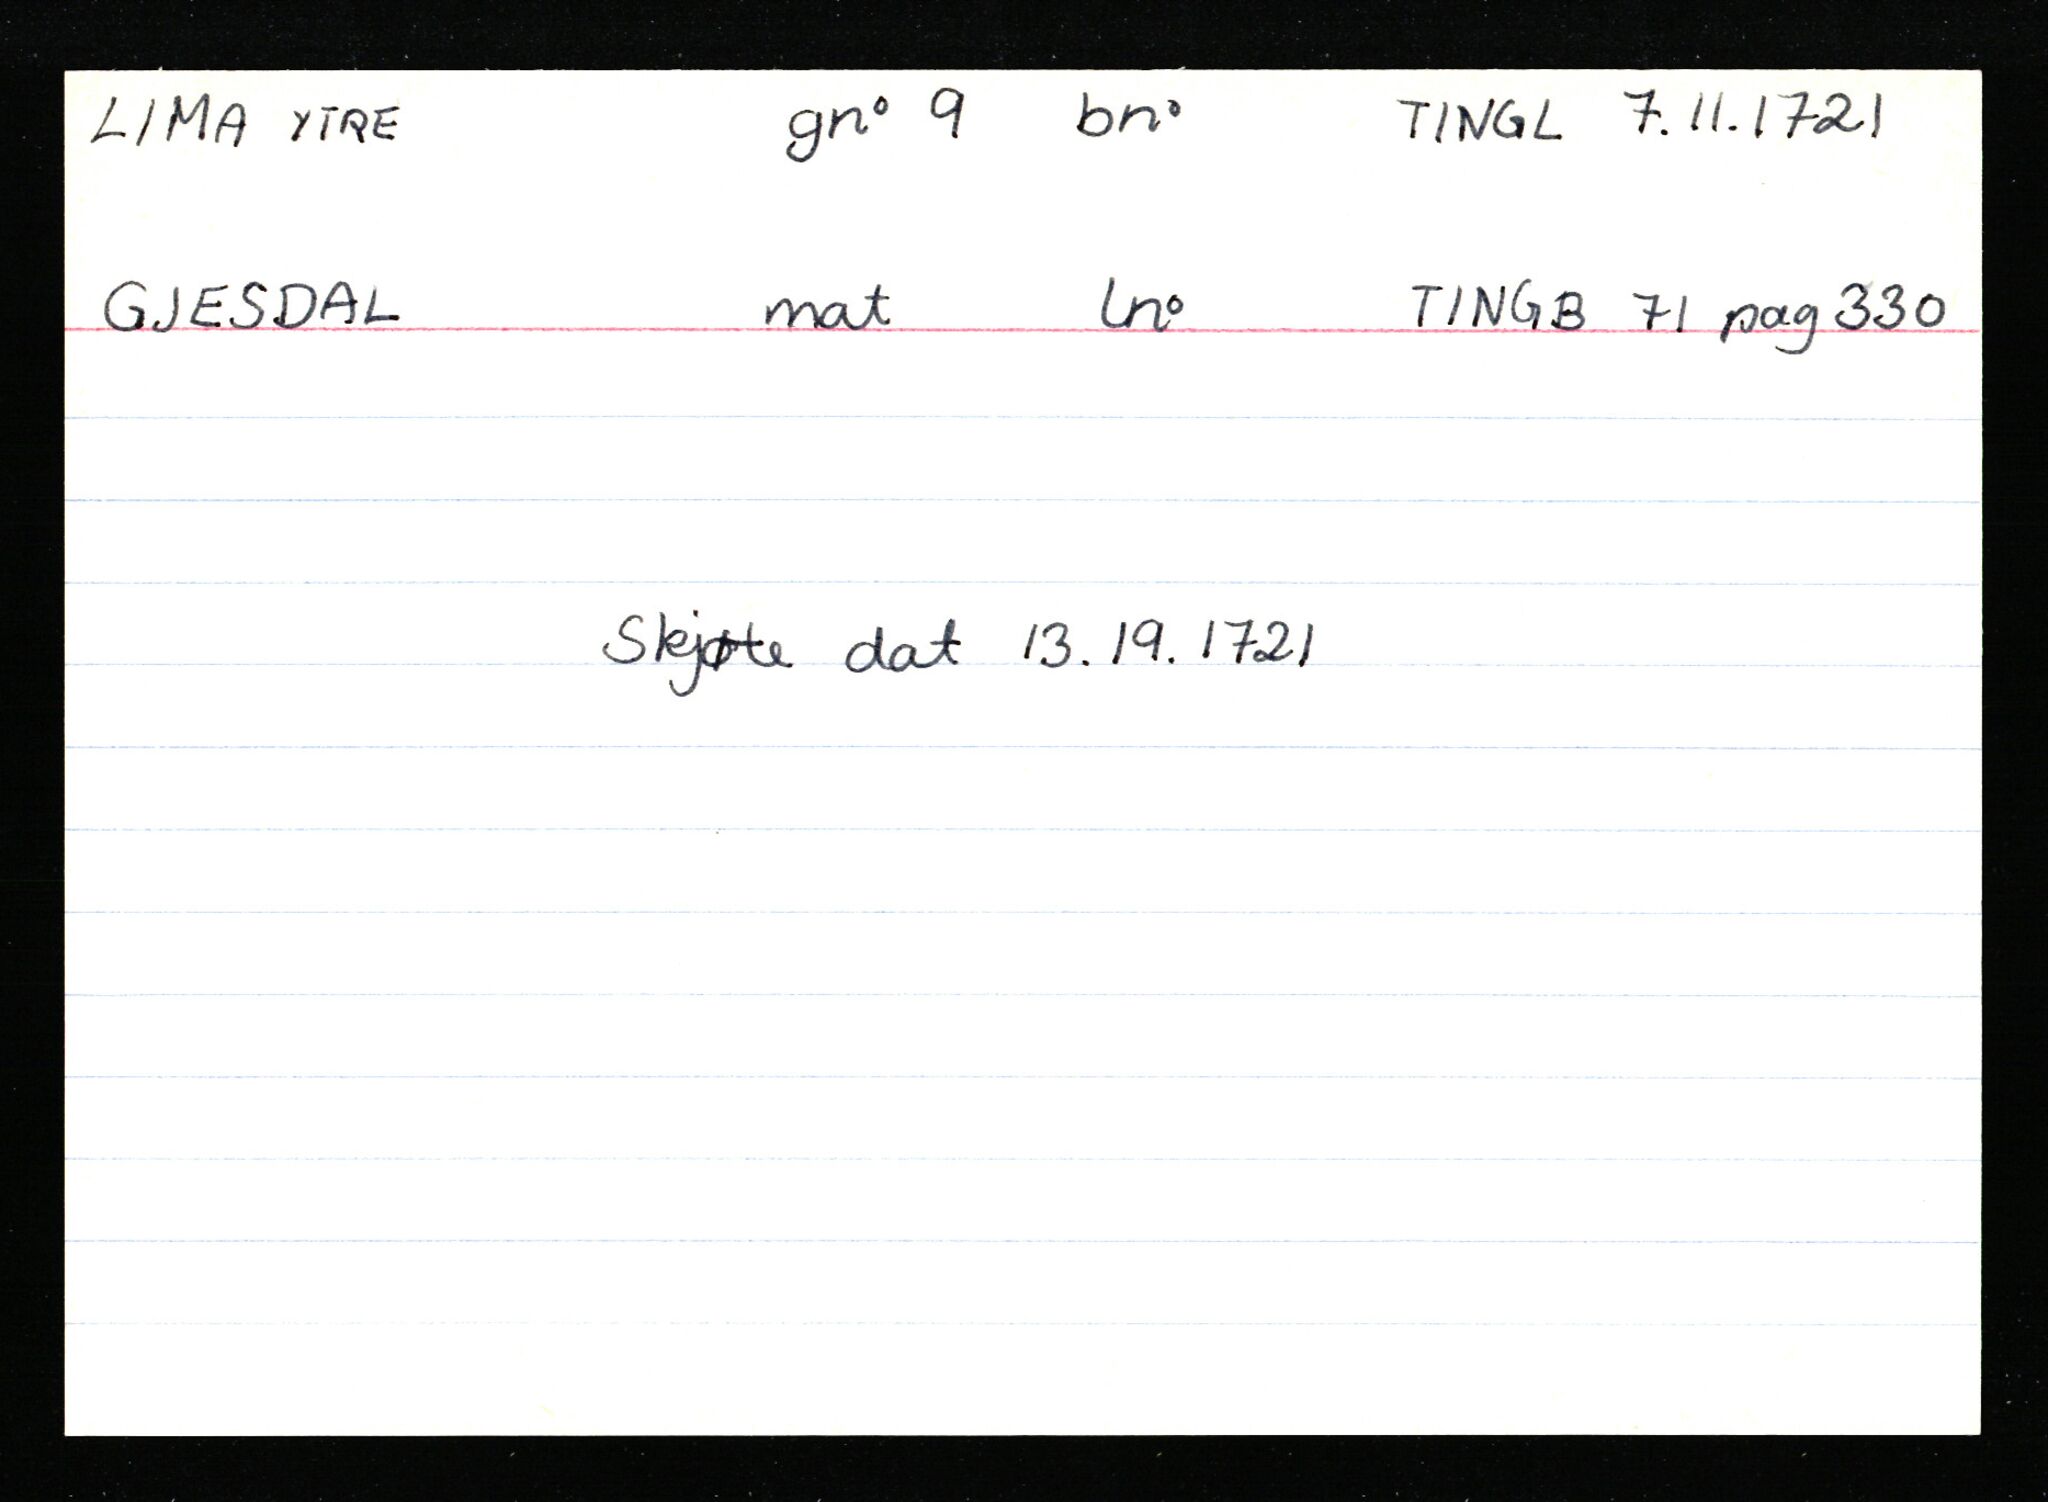 LIMA YTRE gn° 9 bn° TINGL 7.11.1721
GJESDAL mat ln° TINGB 71 pag 330
Skjøte dat 13.19.1721